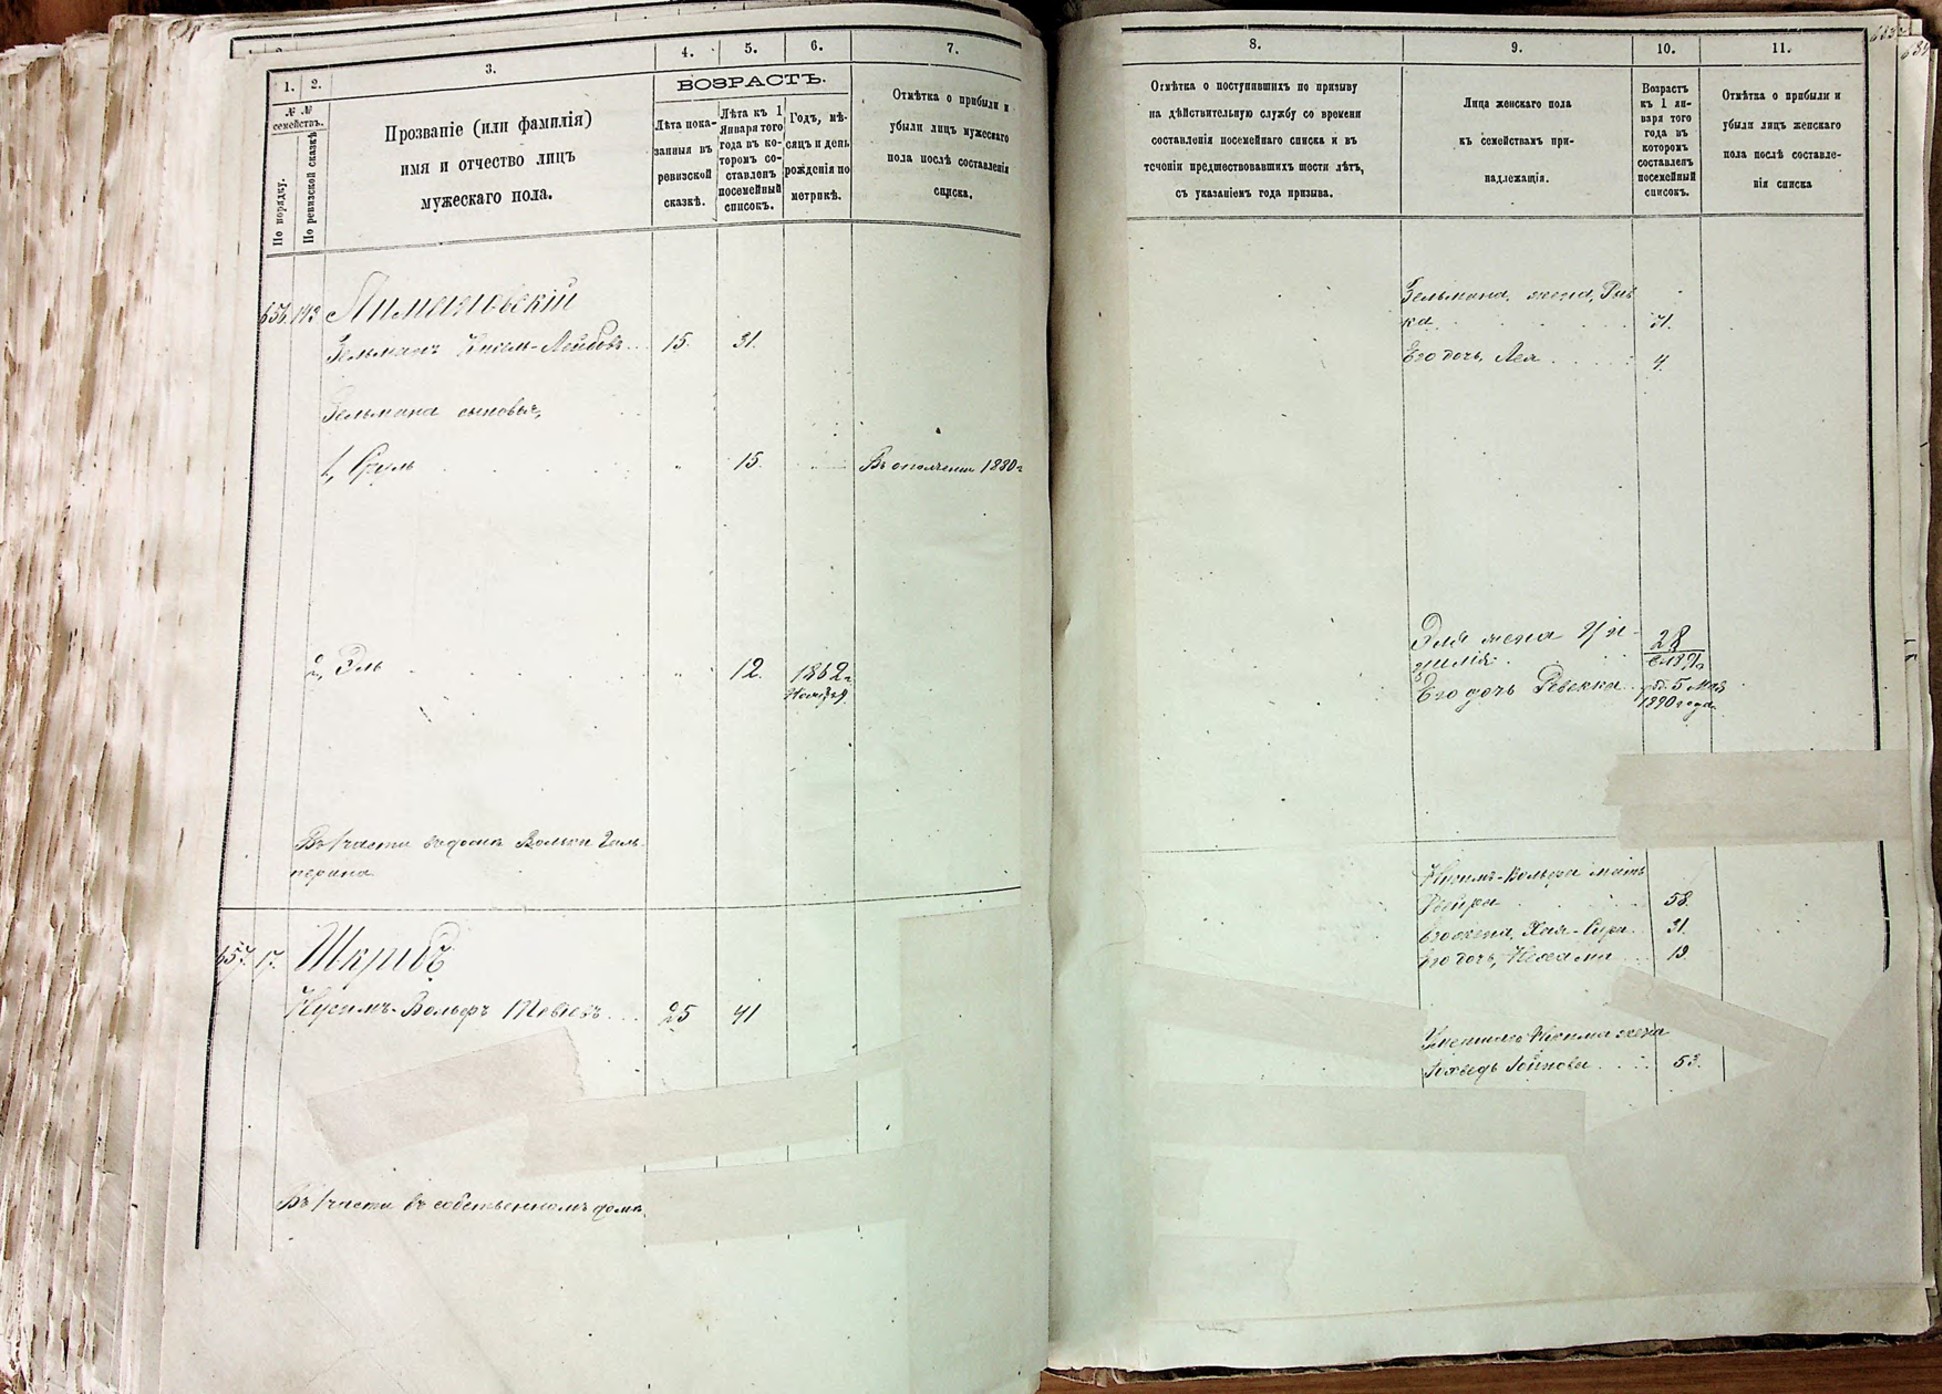 1.
2.
3.
4.
5.
6.
7.
№ №
семействъ.
По порядку.
По ревизской сказкѣ
Прозваніе (или фамилія)
имя и отчество лицъ
мужескаго пола.
ВОЗРАСТЪ.
Лѣта пока-
занныя въ
ревизской
сказкѣ.
Лѣта къ 1
Января того
года въ ко-
торомъ со-
ставленъ
посемейный
списокъ.
Годъ, мѣ-
сяцъ и день
рожденія по
метрикѣ.
Отмѣтка о прибыли и
убыли лицъ мужескаго
пола послѣ составленія
списка.
656. 143
Лимановскій
Зельманъ Лейбовъ 15. 31.
Зельмана сыновья,
1, Сруль 15. Въ ополченіи 1880 г
2, Эль 12. 1862 г
Ноября
Въ 1 части въ домѣ Вольки Галь-
перина
657. 17.
Шкрабъ
Нусимъ-Вольфъ Тевіевъ 25 41
Въ 1 части въ собственномъ домѣ
8.
9.
10.
11.
Отмѣтка о поступившихъ по призыву
на дѣйствительную службу со времени
составленія посемейнаго списка и въ
теченіи предшествовавшихъ шести лѣтъ,
съ указаніемъ года призыва.
Лица женскаго пола
къ семействамъ при-
надлежащія.
Возрастъ
къ 1 ян-
варя того
года въ
которомъ
составленъ
посемейный
списокъ.
Отмѣтка о прибыли и
убыли лицъ женскаго
пола послѣ составле-
нія списка
Зельмана жена, Рив
ка 31.
Его дочь, Лея 4.
Эля жена 28
Его дочь Ревекка род. 5 Мая
1890 года
Нусимъ-Вольфа мать
Хейра 58.
Его жена, Хая-Сура 31.
Его дочь, Нехама 19
Умершаго жена
53.